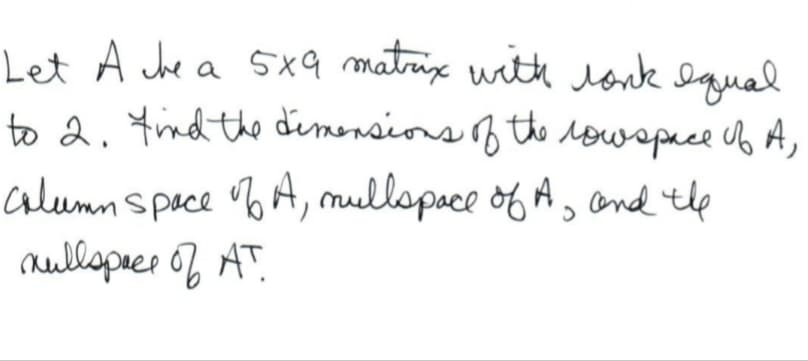 Let A be a 5x9 matrix with rank equal
to 2. Find the dimensions of the rowspace of A,
column space of A, nullspace of A, and the
nullspace of AT.